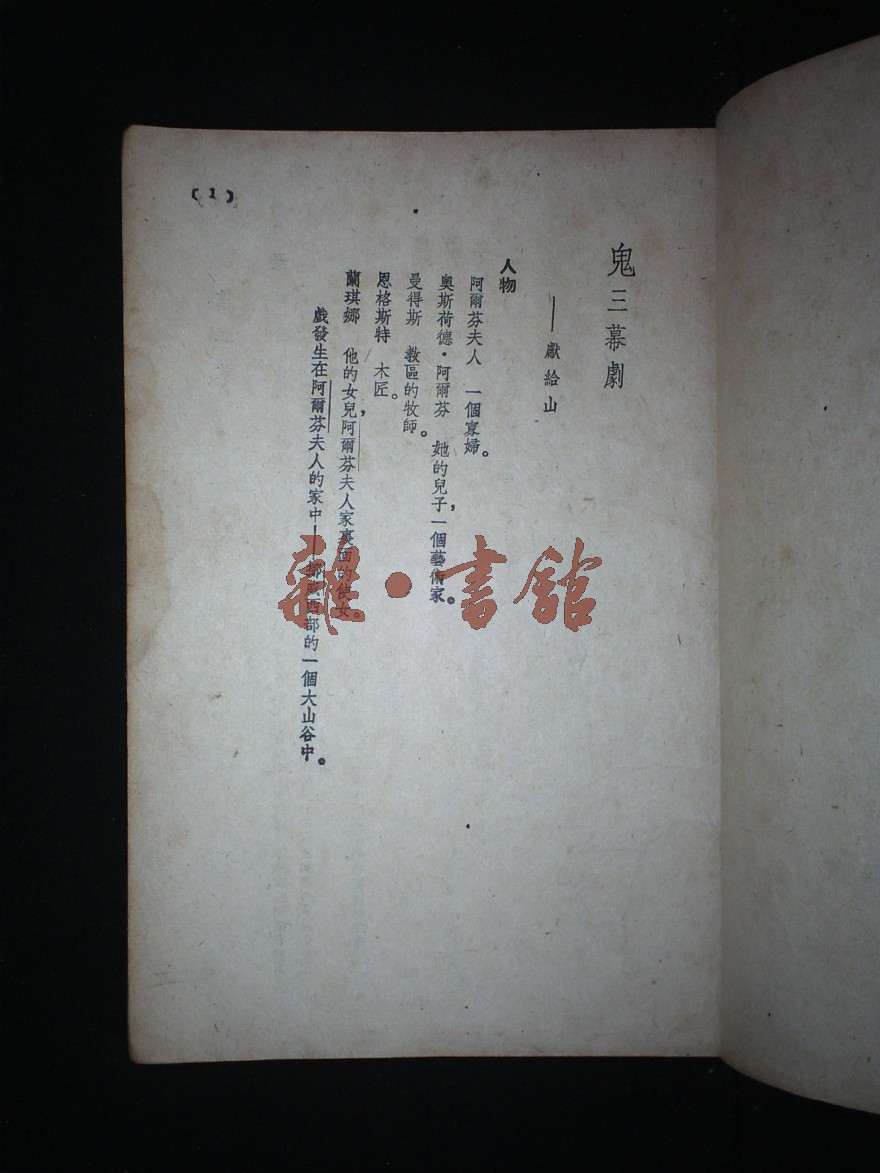 鬼三幕劇
——獻給山
人物
阿爾芬夫人 一個寡婦。
奧斯荷德・阿爾芬 她的兒子，一個藝術家。
曼得斯 教區的牧師。
恩格斯特 木匠。
蘭琪娜 他的女兒，阿爾芬夫人家裏面的使女。
戲發生在阿爾芬夫人的家中——挪威西部的一個大山谷中。
〔1〕
雜・書館